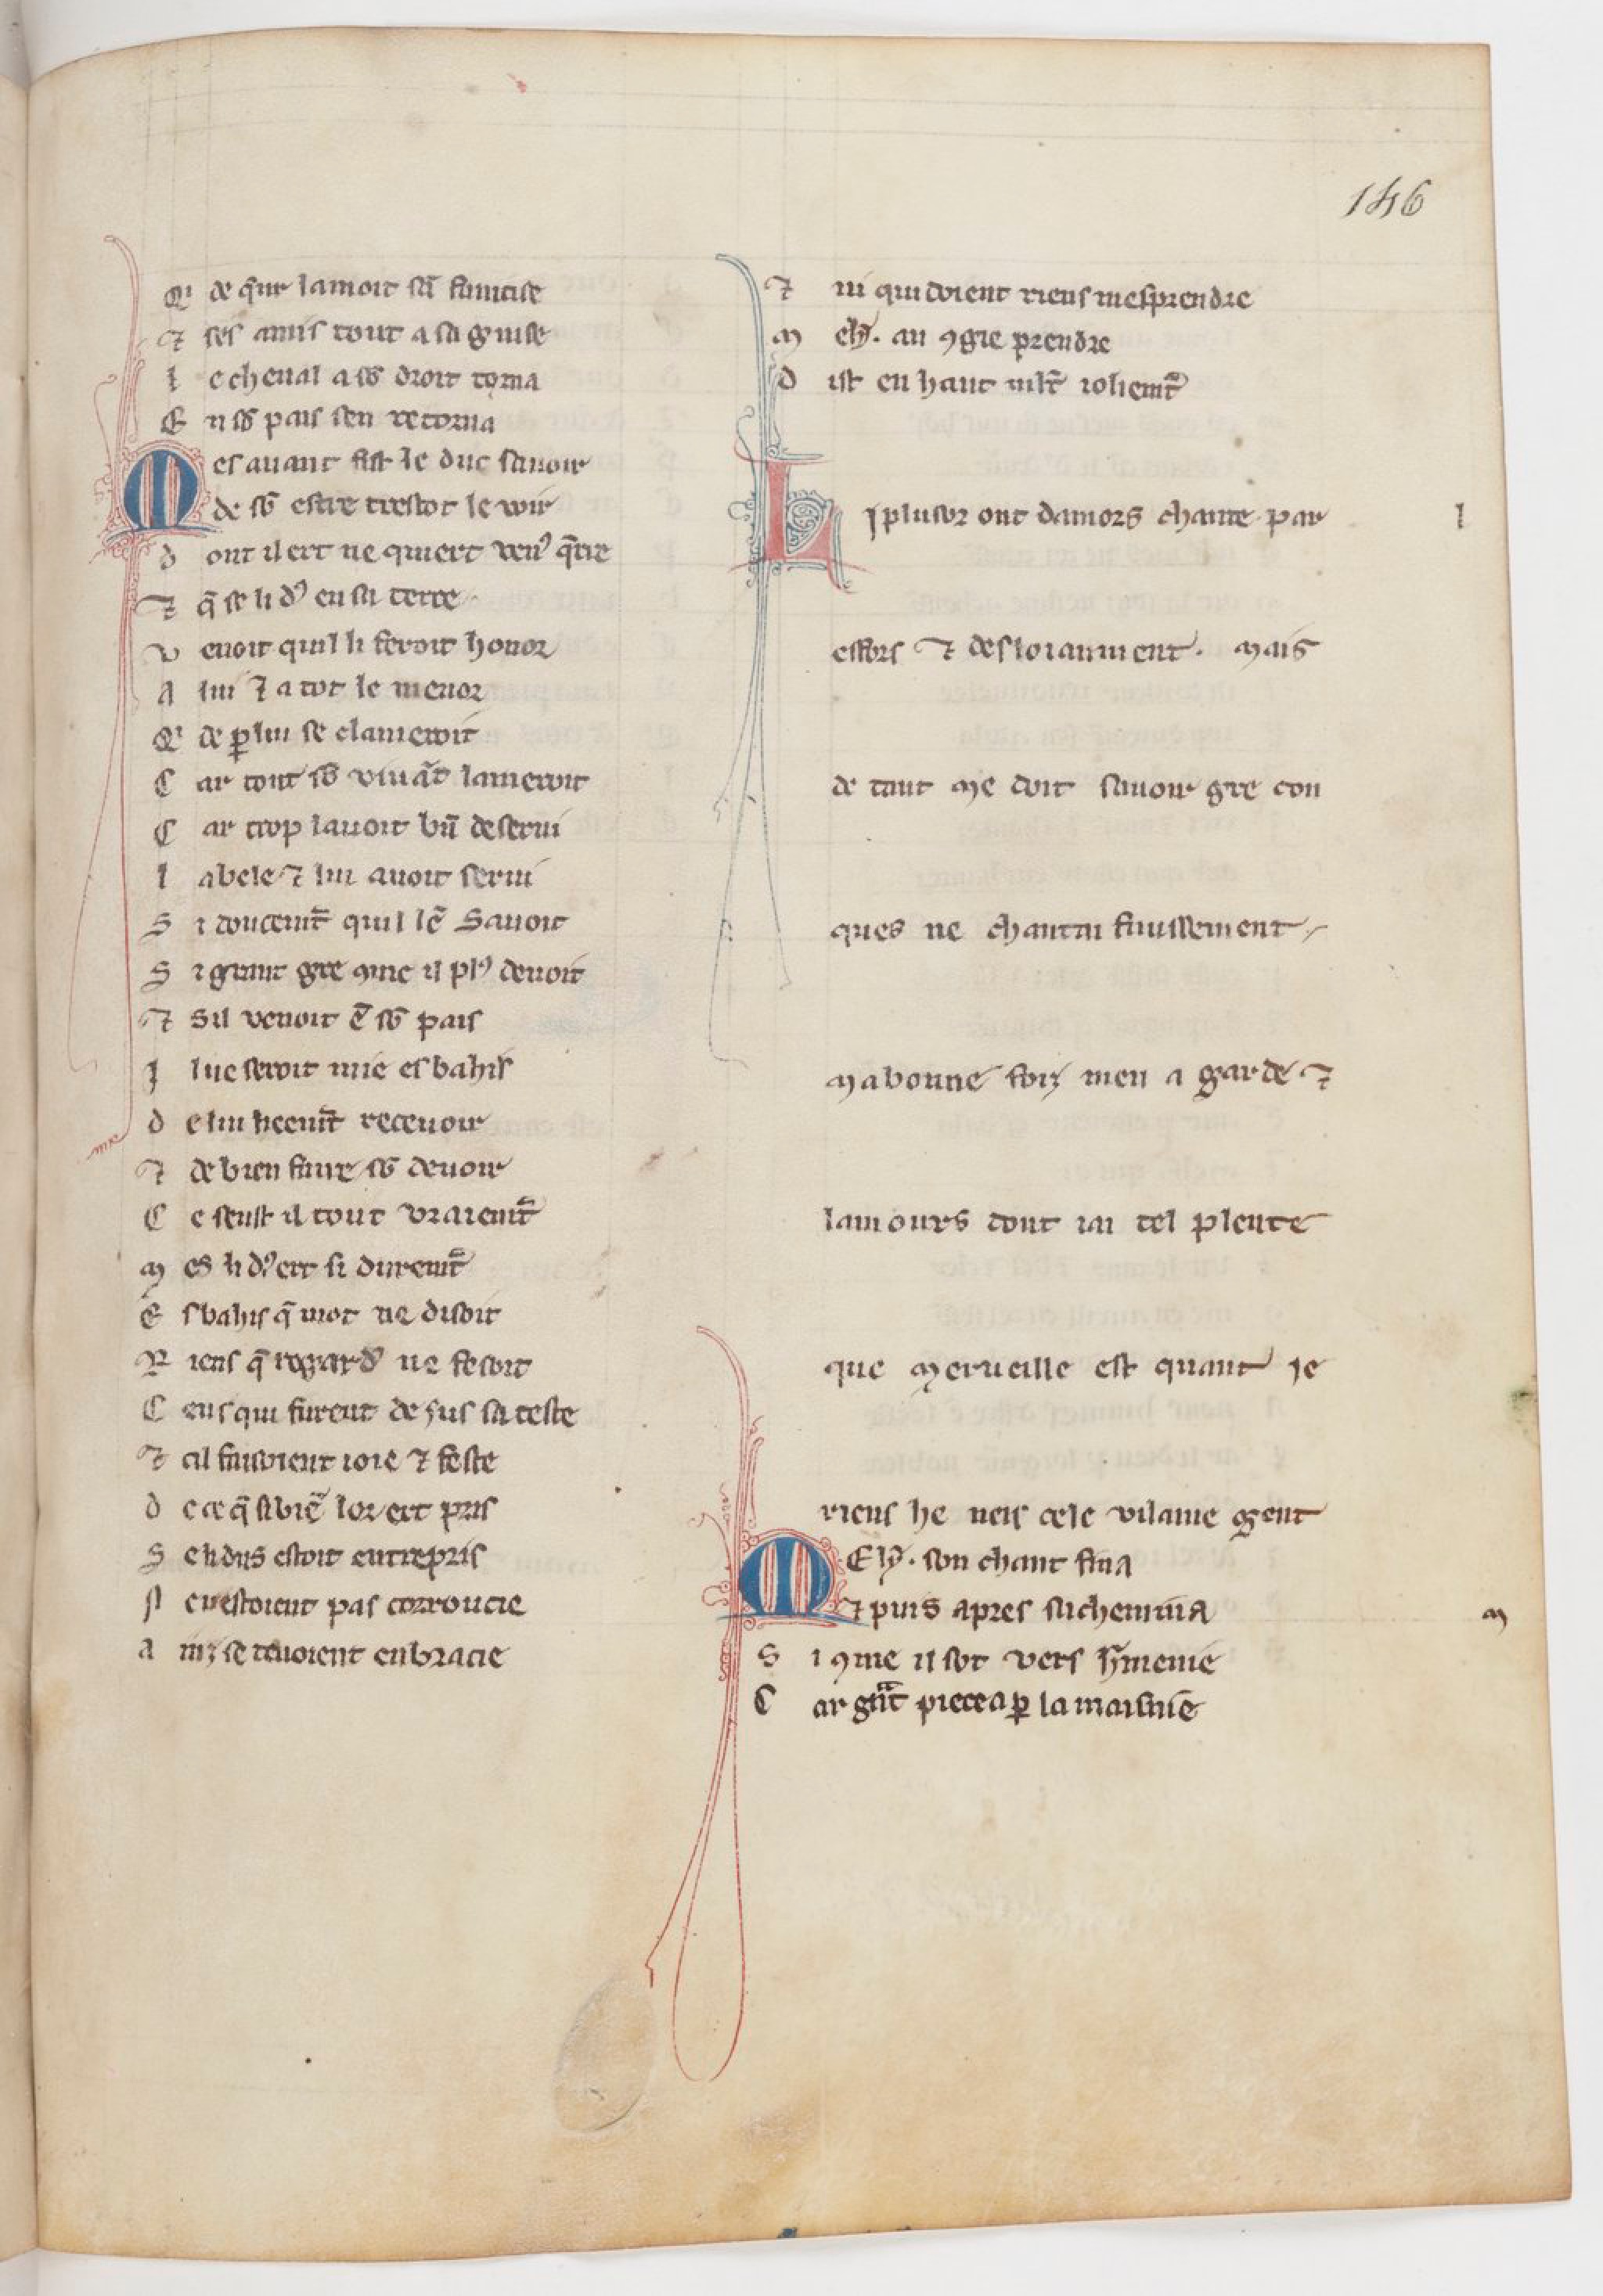 146
Q' de q̃ur lamoit sãs faintise
⁊ ses amis tout a sa guise
l e cheual a sõ droit torna
E n sõ pais sen retorna
M es auant fist le duc sauoir
de sõ estre trestot le voir
d ont il ert ne quiert venꝰ q̃rre
⁊ q̃ se li dꝰ en sa terre
v enoit quil li feroit honor
A lui ⁊ a tot le menor
Q' de ꝑ lui se clameroit
C ar tout sõ viuãt lameroit
C ar trop lauoit bñ deserui
l abele ⁊ lui auoit serui
S i doucemt̃ quil lẽ Sauoit
S i grant gre ꝯme il plꝰ deuoit
⁊ Sil venoit ẽ sõ pais
J l ne seroit mie esbahis
d e lui lieemt̃ receuoir
⁊ de bien faire sõ deuoir
C e seust il tout vraiemt̃
M es li dꝰ ert si duremt̃
E sbahis q̃ mot ne disoit
R iens q̃ regard' ne fesoit
C eus qui furent desus sa teste
⁊ cil faisoient ioie ⁊ feste
d e ce q̃ si biẽ lor ert pris
S e li dus estoit entrepris
N en estoient pas corroucie
A inz se tenoient enbracie
⁊ ni quidoient riens mesprendre
M ely. au ꝯgie prendre
d ist en haut mlt̃ ioliemt̃
L i plusor ont damors chante par
l
esfors ⁊ desloiaument. Mais
de tant Me doit sauoir gre con
ques ne chantai faussement
Mabonne foiz men a garde ⁊
lamours dont iai tel plente
que Merueille est quant Je
riens he neis cele vilaine gent
M Ely. son chant fina
⁊ puis apres sachemina
M
S i ꝯme il sot vers h̃menie
C ar gñt piece a ꝑ la maisniẽ